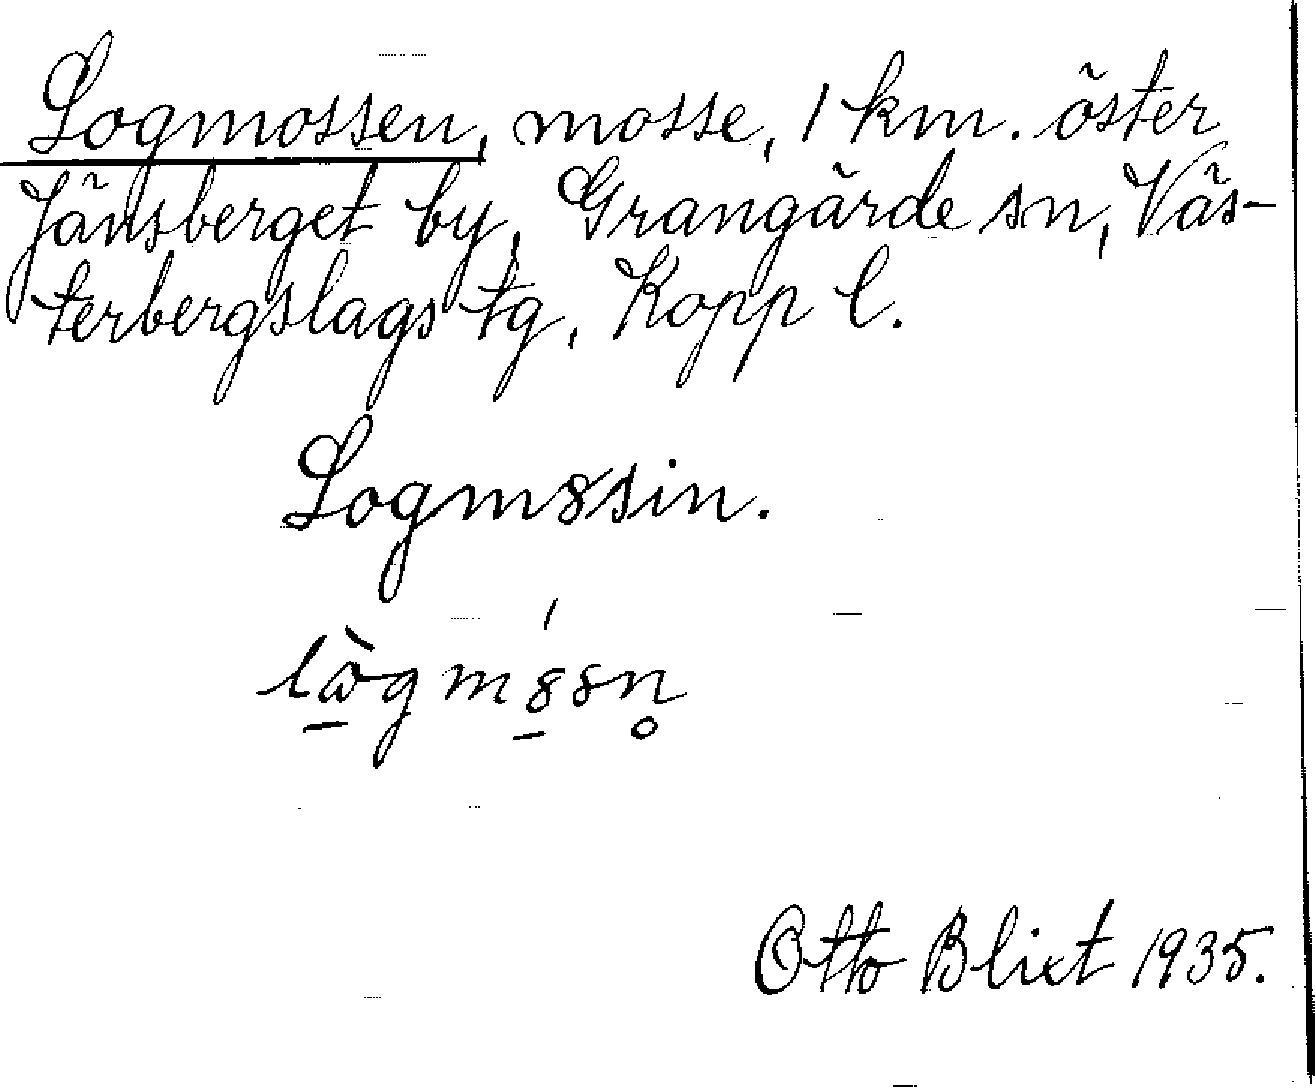 Logmossen, mosse, 1 km. öster
Jänsberget by, Grangärde sn, Väs-
terbergslags tg, Kopp l.
Logm8sin.
Otto Blixt 1935.